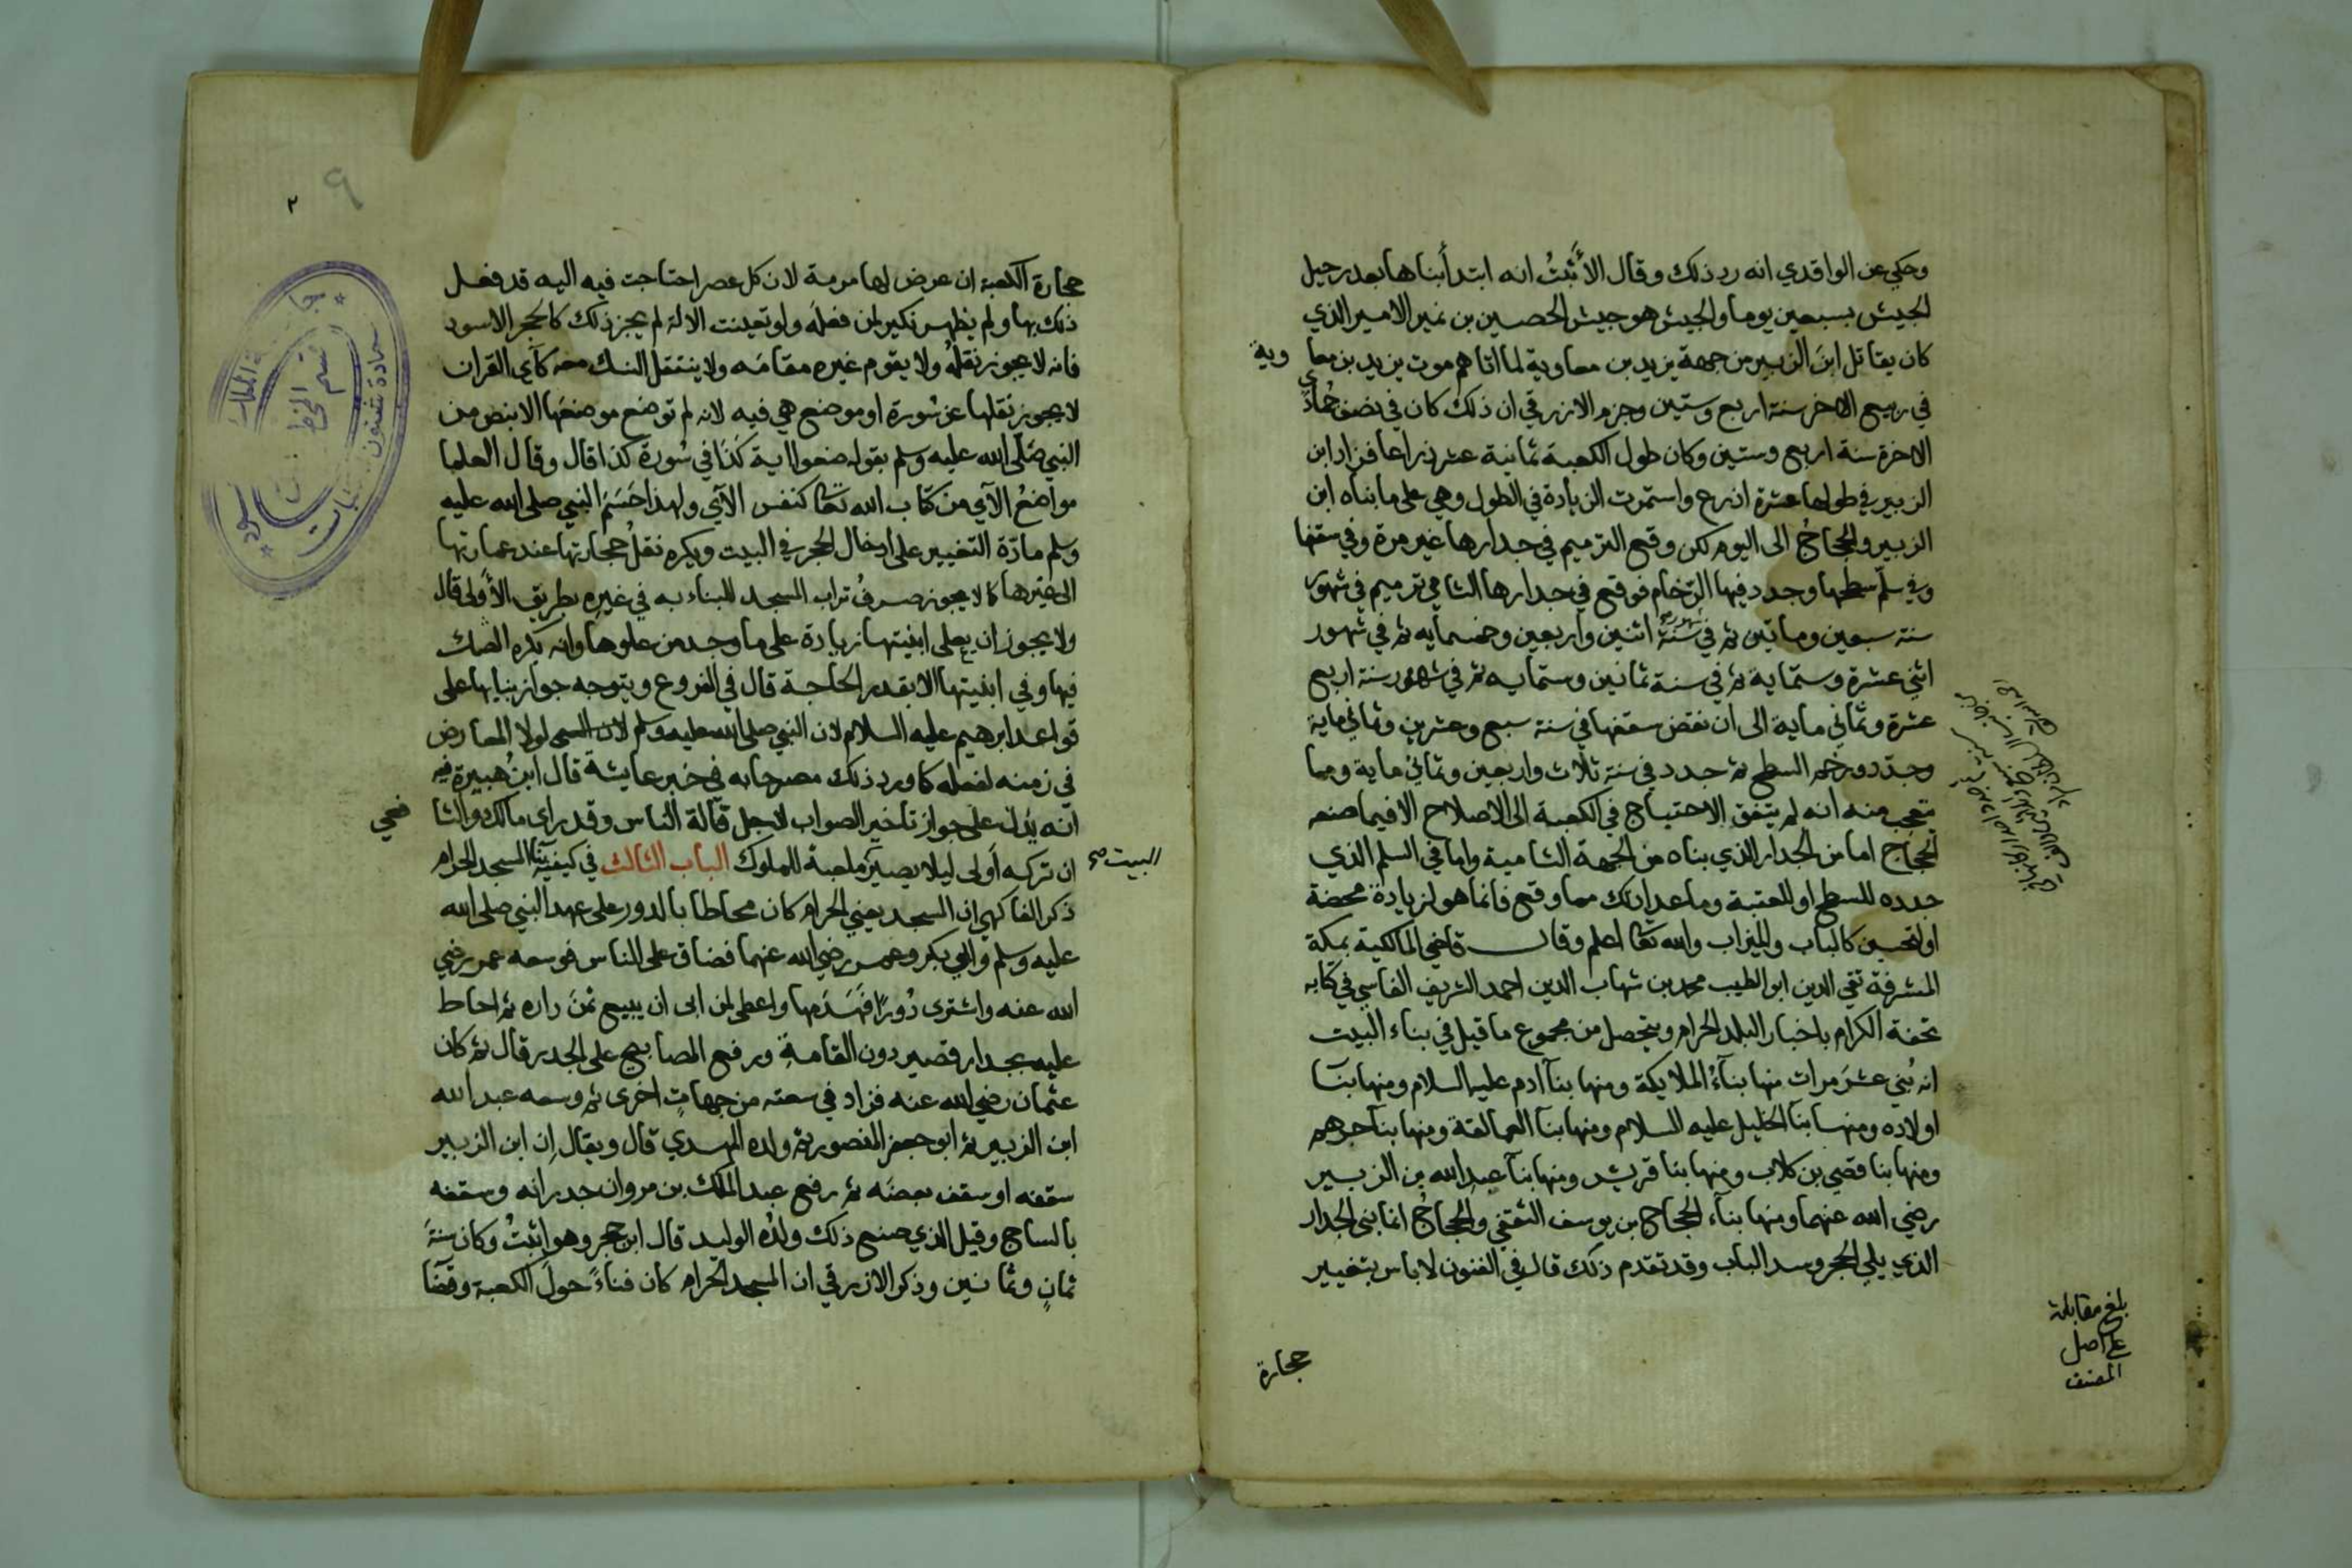 وحكي عن الواقدي انه رد ذلك وقال الأثبتُ انه ابتدأ بناها بعد رحيل
الجيش بسبعين يوما والجيش هو جيش الحصين بن نمير الامير الذي
كان يقاتل ابن الزبير من جهة يزيد بن معاوية لما اتاهم موت يزيد بن معاوية
في ربيع الاخر سنة اربع وستين وجزم الازرقي ان ذلك كان في نصف جُمادى
الاخرة سنة اربع وستين وكان طول الكعبة ثمانية عشر ذراعا فزاد ابن
الزبير في طولها عشرة اذرع واستمرت الزيادة في الطول وهي على ما بناه ابن
الزبير والحجاجُ الى اليوم لكن وقع الترميم في جدارها غير مرة وفي سقفها
وفي سلّم سطحها وجدد فيها الرّخام فوقع في جدارها الشامي ترميم في شهور
سنة سبعين وماتين ثم في شهور سنة اثنين واربعين وخمسمايه ثم في شهور
اثني عشرة وستماية ثم في سنة ثمانين وستمايه ثم في شهور سنة اربع
عشرة وثماني ماية الى ان نقض سقفها في سنة سبع وعشرين وثماني ماية
وجدّد ورخم السطح ثم جدد في سنة ثلاث واربعين وثماني ماية ومما
يتعجب منه انه لم يتفق الاحتياج في الكعبة الى الاصلاح الا فيما صنعه
الحجاج اما من الجدار الذي بناه من الجهة الشامية واما في السلم الذي
جدده للسطح او للعتبة وما عدا ذلك مما وقع فانما هو لزيادة محضة
او لتحسين كالباب والميزاب والله تعا اعلم وقال قاضي المالكية بمكة
المشرفة تقي الدين ابو الطيب محمد بن شهاب الدين احمد الشريف الفاسي في كتابه
تحفة الكرام باخبار البلد الحرام ويتحصل من مجموع ما قيل في بناء البيت
انه بُني عشرَ مرات منها بناءُ الملايكة ومنها بنآ ادم عليه السلام ومنها بنآ
اولاده ومنها بنآ الخليل عليه السلام ومنها بنا العمالقة ومنها بنآ جرهم
ومنها بنا قصي بن كلاب ومنها بنا قريش ومنها بنآ عبد الله بن الزبير
رضي الله عنهما ومنها بنآء الحجاج بن يوسف الثقفي والحجاجُ انما بنى الجدار
الذي يلي الحجر وسد الباب وقد تقدم ذلك قال في الفنون لا باس بتغيير
حجارة
بلغ مقابلة
على اصل
المصنف
٩
٢
حجارة الكعبة ان عرض لها مرمة لان كل عصر احتاجت فيه اليه قد فعل
ذلك بها ولم يظهر نكير لمن فعله ولو تعينت الالة لم يجز ذلك كالحجر الاسود
فانه لا يجوز نقلهُ ولا يقوم غيره مقامَه ولا ينتقل النسك معه كآي القران
لا يجوز نقلها عن سُورة او موضع هي فيه لانه لم توضع موضعَها الا بنص من
النبي صلّى الله عليه وسلم بقوله ضعوا اية كَذا في سُورة كذا قال وقال العلما
مواضعُ الآي من كتاب الله تعا كنفس الآي ولهذا حَسَمَ النبي صلى الله عليه
وسلم مادّة التغيير على ادخال الحجر في البيت ويكره نقلُ حجارتها عند عمارتها
الى غيرها كما لا يجوز صرفُ تراب المسجد للبناء به في غيره بطريق الأولى قال
ولا يجوز ان يعلى ابنيتها زيادة على ما وجد من علوها وانه يكره الصك
فيها وفي ابنيتها الا بقدر الحاجة قال في الفروع ويتوجه جواز بنايها على
قواعد ابرهيم عليه السلام لان النبي صلى الله عليه وسلم لولا المعارض
في زمنه لفعله كما ورد ذلك مصرحا به في خبر عايشة قال ابنُ هبيرة فيه
انه يدُلّ على جواز تاخير الصواب لاجل قالة الناس وقد راى مالك والشافعي
ان تركه اولى ليلا يصير البيت ملعبةً للملوك الباب الثالث في كيفية بنآ المسجد الحرام
ذكر الفاكهي ان المسجد يعني الحرام كان محاطا بالدور على عهد النبي صلى الله
عليه وسلم وابي بكر وعمر رضي الله عنهما فضاق على الناس فوسعه عمر رضي
الله عنه واشترى دُورًا فهَدَمها واعطى لمن ابى ان يبيع ثمنَ داره ثم احاط
عليه بجدار قصير دون القامة ورفع المصابيح على الجدر قال ثم كان
عثمان رضي الله عنه فزاد في سعته من جهاتٍ اخرى ثم وسعه عبد الله
ابن الزبير ثم ابو جعفر المنصور ثم ولده المهدي قال ويقال إن ابن الزبير
سقفه او سقف بعضَه ثم رفع عبد الملك بن مروان جدرانه وسقفه
بالساج وقيل الذي صنع ذلك ولدُه الوليد قال ابن حجر وهو اثبتُ وكان سنةَ
ثمانٍ وثمانين وذكر الازرقي ان المسجد الحرام كان فناءً حولَ الكعبة وفضآ